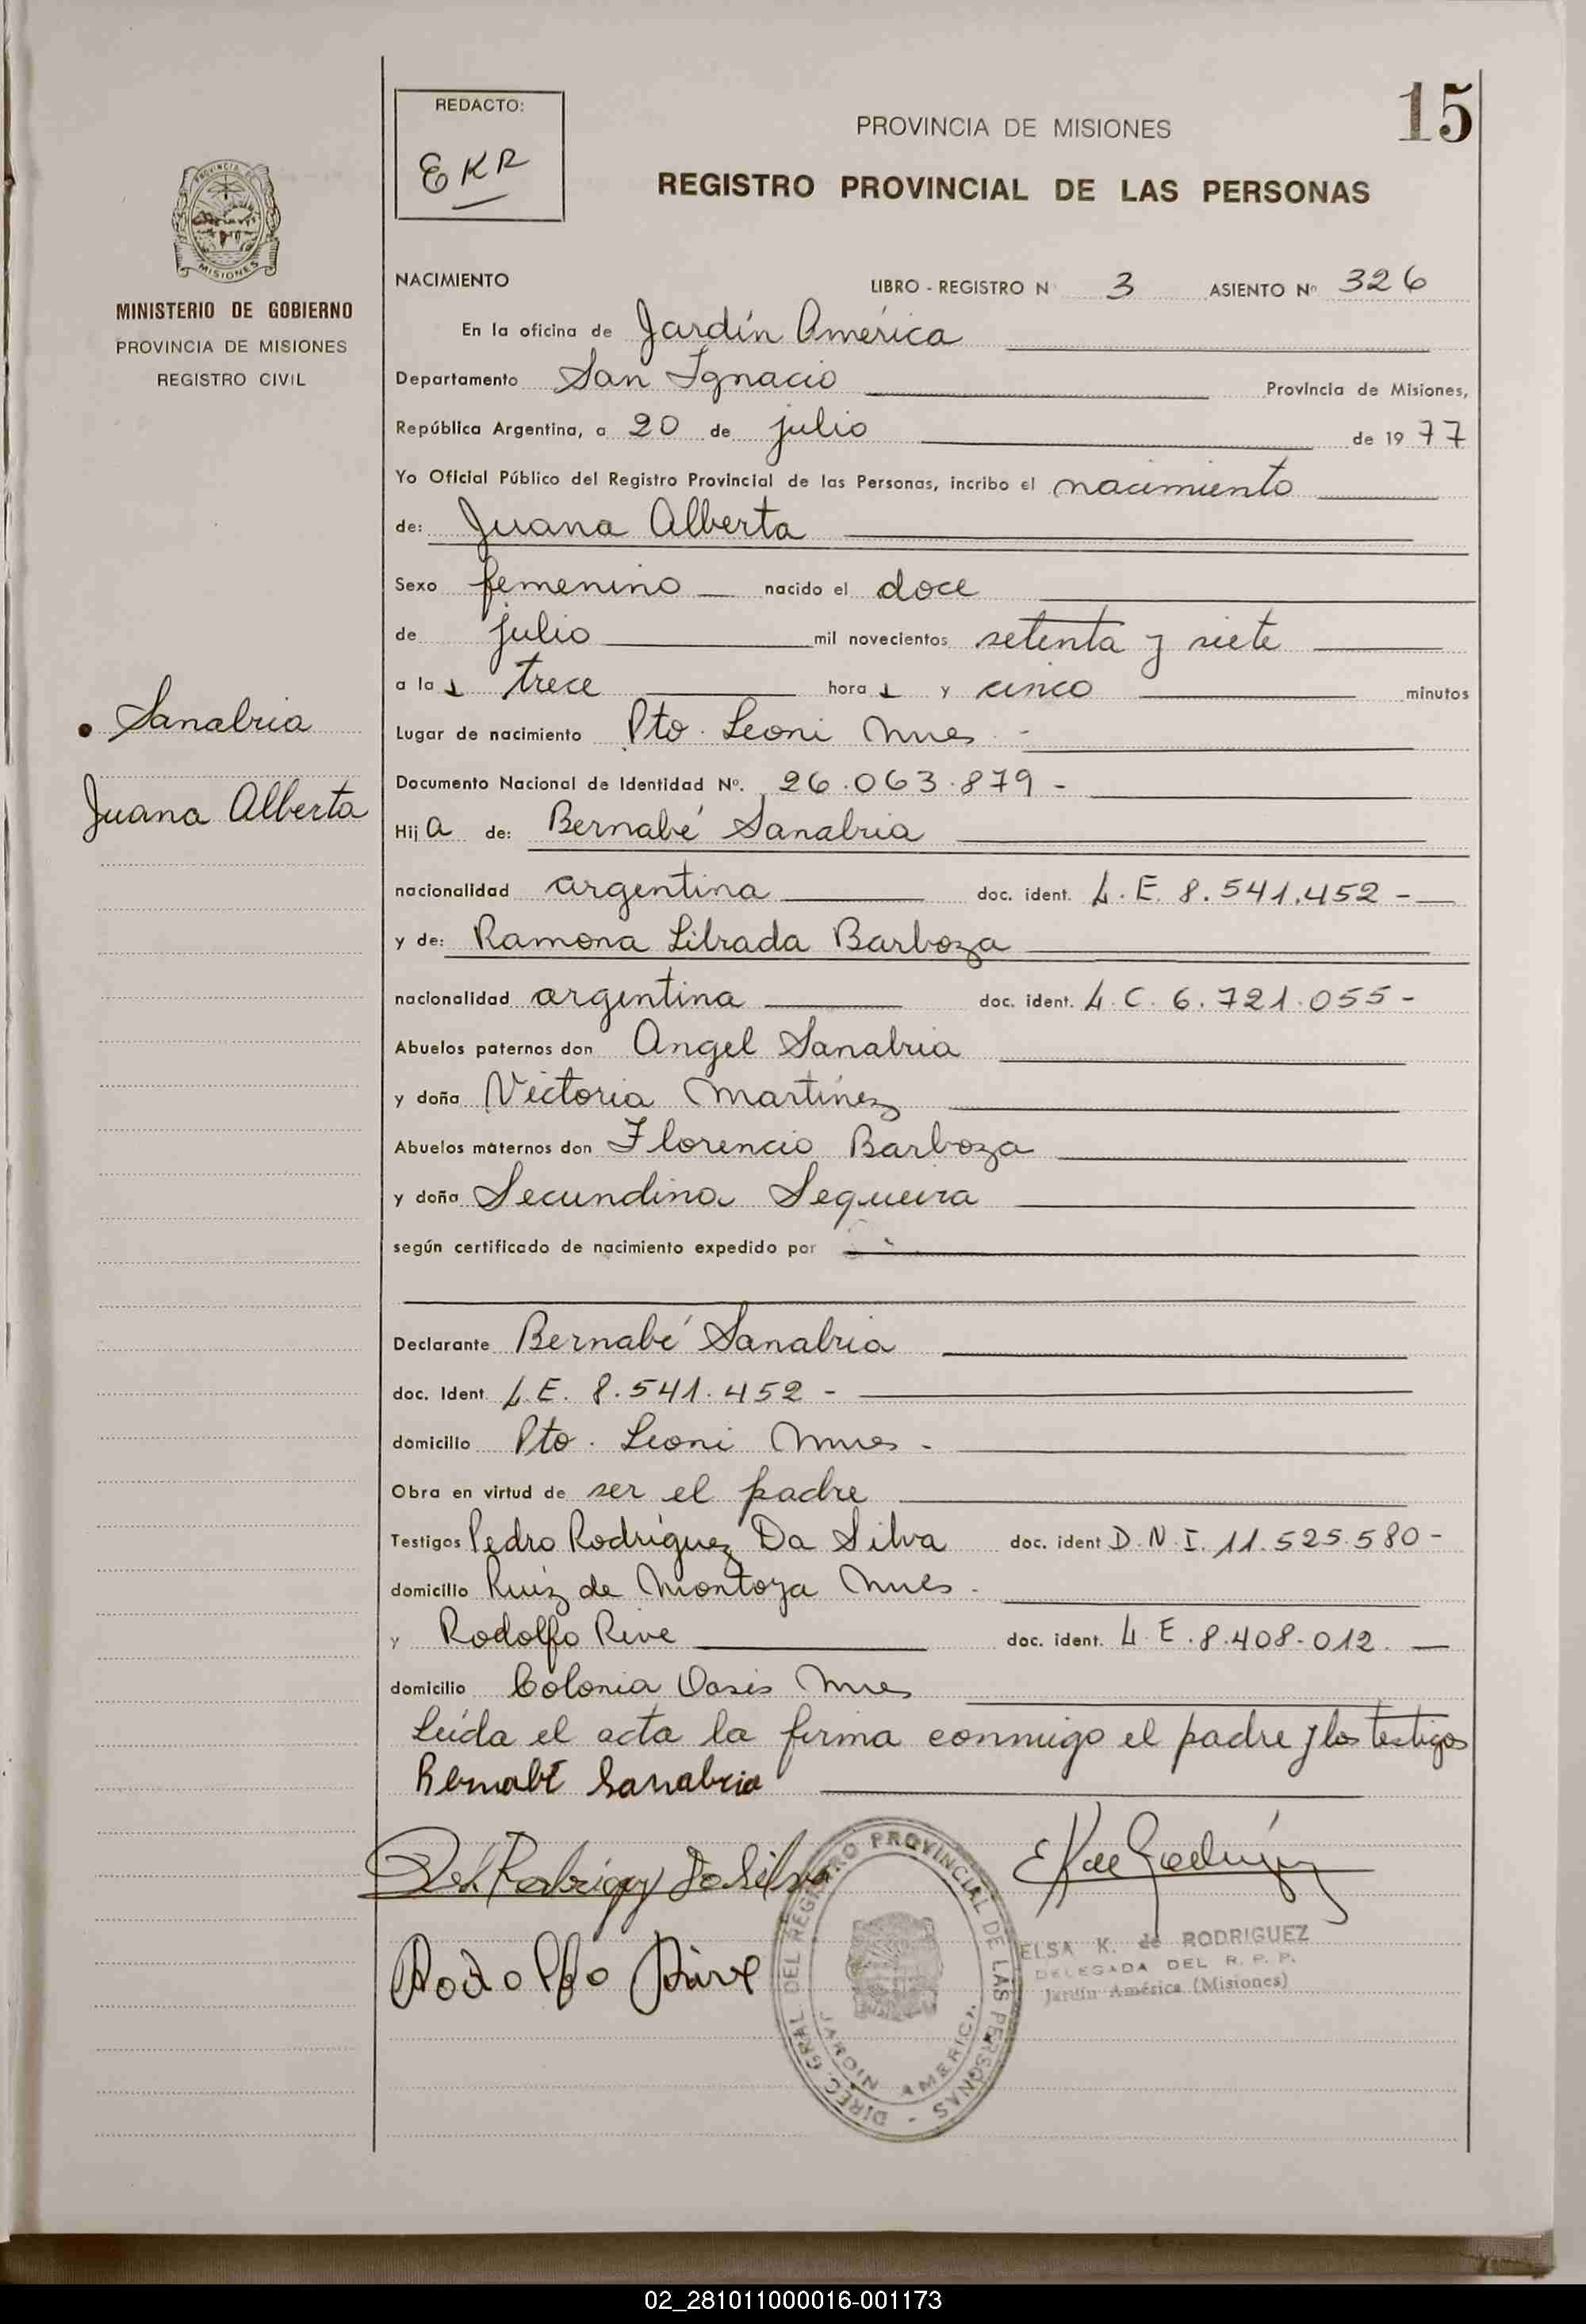 15
REDACTO:
EKR
PROVINCIA DE MISIONES
REGISTRO PROVINCIAL DE LAS PERSONAS
PROVINCIA DE
MISIONES
MINISTERIO DE GOBIERNO
PROVINCIA DE MISIONES
REGISTRO CIVIL
Sanabria
Juana Alberta
NACIMIENTO LIBRO - REGISTRO N 3 ASIENTO Nº 326
En la oficina de Jardín América
Departamento San Ignacio Provincia de Misiones,
República Argentina, a 20 de julio de 1977
Yo Oficial Público del Registro Provincial de las Personas, incribo el nacimiento
de: Juana Alberta
Sexo femenino nacido el doce
de julio mil novecientos setenta y siete
a las trece horas y cinco minutos
Lugar de nacimiento Pto. Leoni Mnes -
Documento Nacional de Identidad Nº. 26.063.879 -
Hija de: Bernabé Sanabria
nacionalidad argentina doc. ident. L.E. 8.541.452 -
y de: Ramona Librada Barboza
nacionalidad argentina doc. ident. L.C. 6.721.055 -
Abuelos paternos don Angel Sanabria
y doña Victoria Martínez
Abuelos maternos don Florencio Barboza
y doña Secundina Sequeira
según certificado de nacimiento expedido por
Declarante Bernabé Sanabria
doc. Ident. L.E. 8.541.452 -
domicilio Pto. Leoni Mnes -
Obra en virtud de ser el padre
Testigos Pedro Rodríguez Da Silva doc. ident D.N.I. 11.525.580 -
domicilio Ruiz de Montoya Mnes.
y Rodolfo Rive doc. ident. L.E. 8.408.012.
domicilio Colonia Oasis Mnes
Leída el acta la firma conmigo el padre y los testigos
Bernabé Sanabria
Rodriguez Da Silva
E K de Rodríguez
Rodolfo Rive
DIREC. GRAL DEL REGISTRO PROVINCIAL DE LAS PERSONAS -
JARDIN AMERICA
ELSA K. de RODRIGUEZ
DELEGADA DEL R. P. P.
Jardín América (Misiones)
02_281011000016-001173